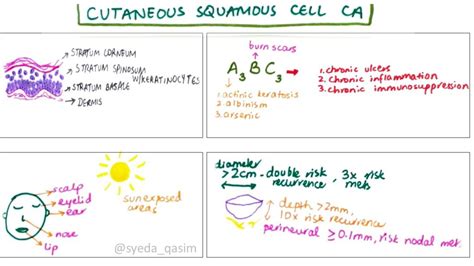 CUTANEOUS SQUAMOUS CELL CA
STRATUM CORNEUM
STRATUM SPINOSUM
W/KERATINOCYTES
STRATUM BASALE
DERMIS
burn scars
A3 B C3
1. actinic keratosis
2. albinism
3. arsenic
1. chronic ulcers
2. chronic inflammation
3. chronic immunosuppression
scalp
eyelid
ear
nose
lip
sun exposed
areas
@syeda_qasim
diameter
>2cm - double risk recurrence, 3x risk mets
depth >2mm,
10x risk recurrence
perineural ≥0.1mm, risk nodal met.